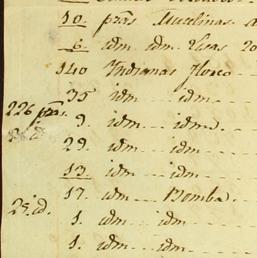 10. pzãs Muselinas
6. idm.. idm. Lisas 20
140 Indianas floreo
35 idm... idm.
226 pzãs.
9. idm... idm.
29. idm... idm.
13. idm... idm.
17. idm... Bomba.
25. id.
1. idm... idm
1. idm... idm